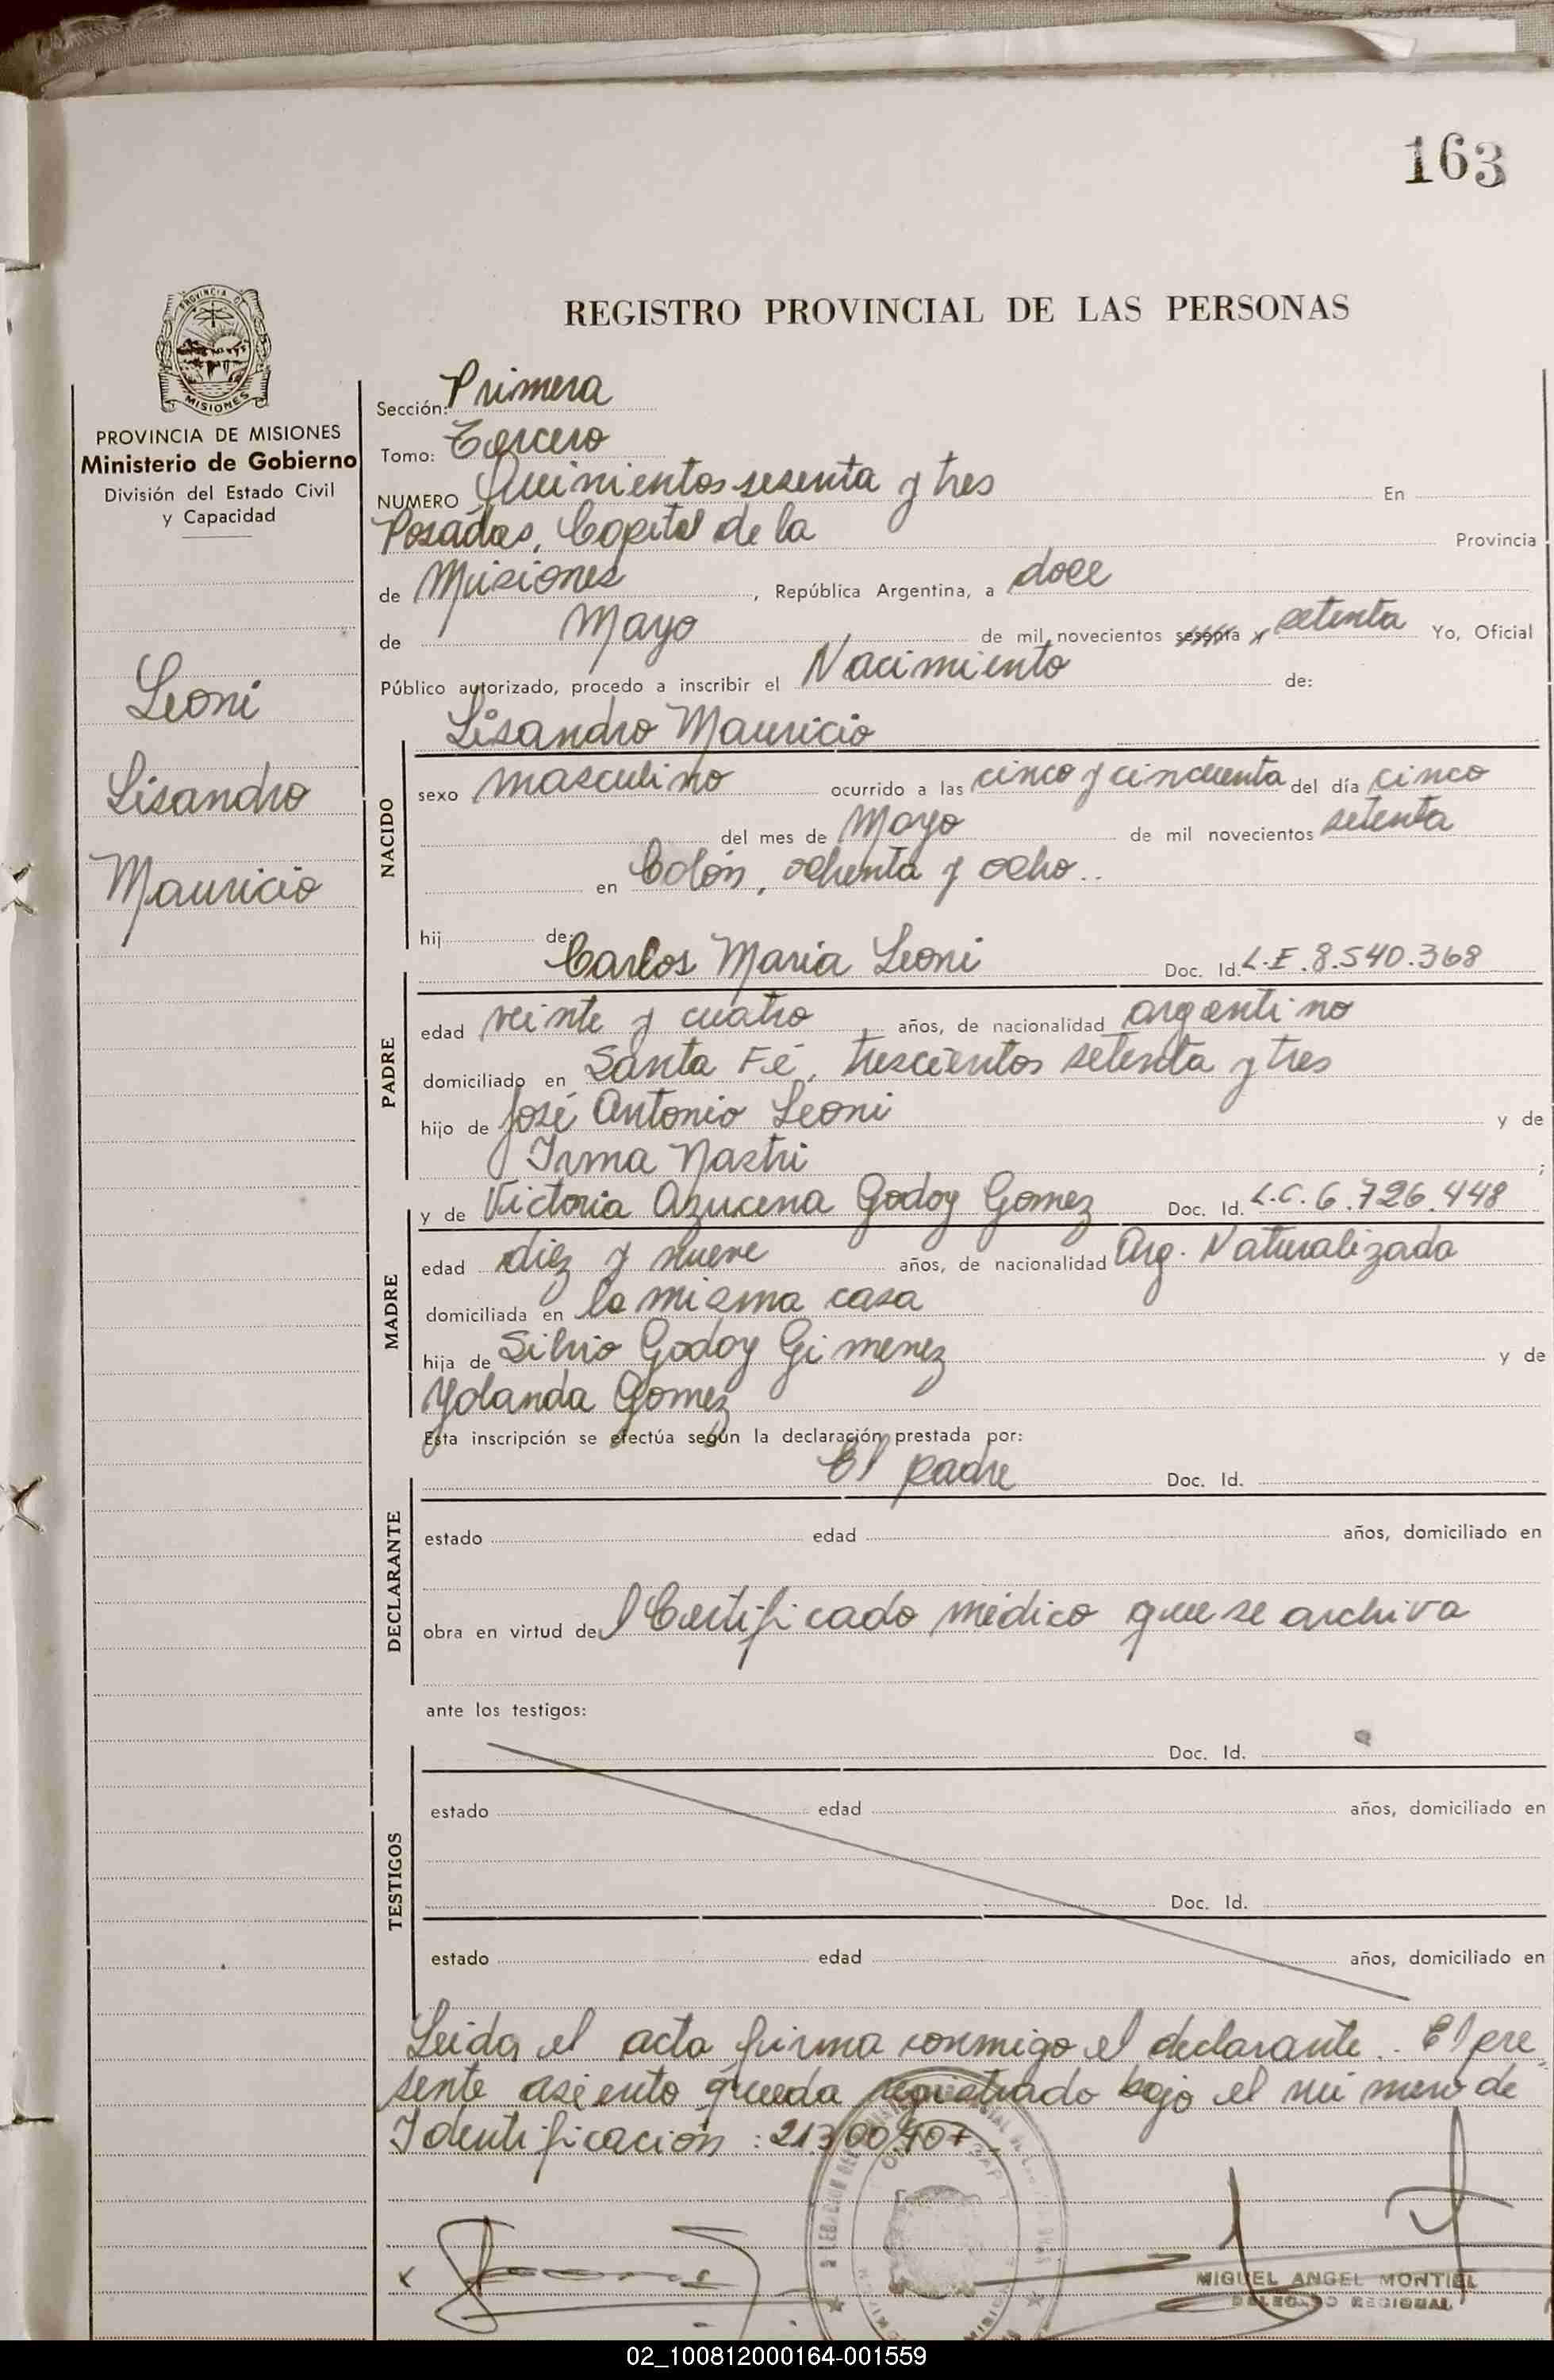 163
REGISTRO PROVINCIAL DE LAS PERSONAS
PROVINCIA DE
MISIONES
PROVINCIA DE MISIONES
Ministerio de Gobierno
División del Estado Civil
y Capacidad
Leoni
Lisandro
Mauricio
Sección: Primera
Tomo: Tercero
NUMERO Quinientos sesenta y tres En
Posadas, Capital de la Provincia
de Misiones, República Argentina, a doce
de Mayo de mil novecientos sesenta y setenta Yo, Oficial
Público autorizado, procedo a inscribir el Nacimiento de:
Lisandro Mauricio
NACIDO
sexo masculino ocurrido a las cinco y cincuenta del día cinco
del mes de Mayo de mil novecientos setenta
en Colón, ochenta y ocho..
hij de:
Carlos Maria Leoni Doc. Id. L.E. 8.540.368
PADRE
edad veinte y cuatro años, de nacionalidad argentino
domiciliado en Santa Fé, trescientos setenta y tres
hijo de José Antonio Leoni y de
Irma Nastri ;
y de Victoria Azucena Godoy Gomez Doc. Id. L.C. 6.726.448
MADRE
edad diez y nueve años, de nacionalidad Arg. Naturalizada
domiciliada en la misma casa
hija de Silvio Godoy Gimenez y de
Yolanda Gomez
Esta inscripción se efectúa según la declaración prestada por:
El padre Doc. Id.
DECLARANTE
estado edad años, domiciliado en
obra en virtud del Certificado médico que se archiva
ante los testigos:
Doc. Id.
TESTIGOS
estado edad años, domiciliado en
Doc. Id.
estado edad años, domiciliado en
Leida el acta firma conmigo el declarante.. El pre-
sente asiento queda registrado bajo el número de
Identificación : 21.300.407
MIGUEL ANGEL MONTIEL
DELEGADO REGIONAL
02_100812000164-001559